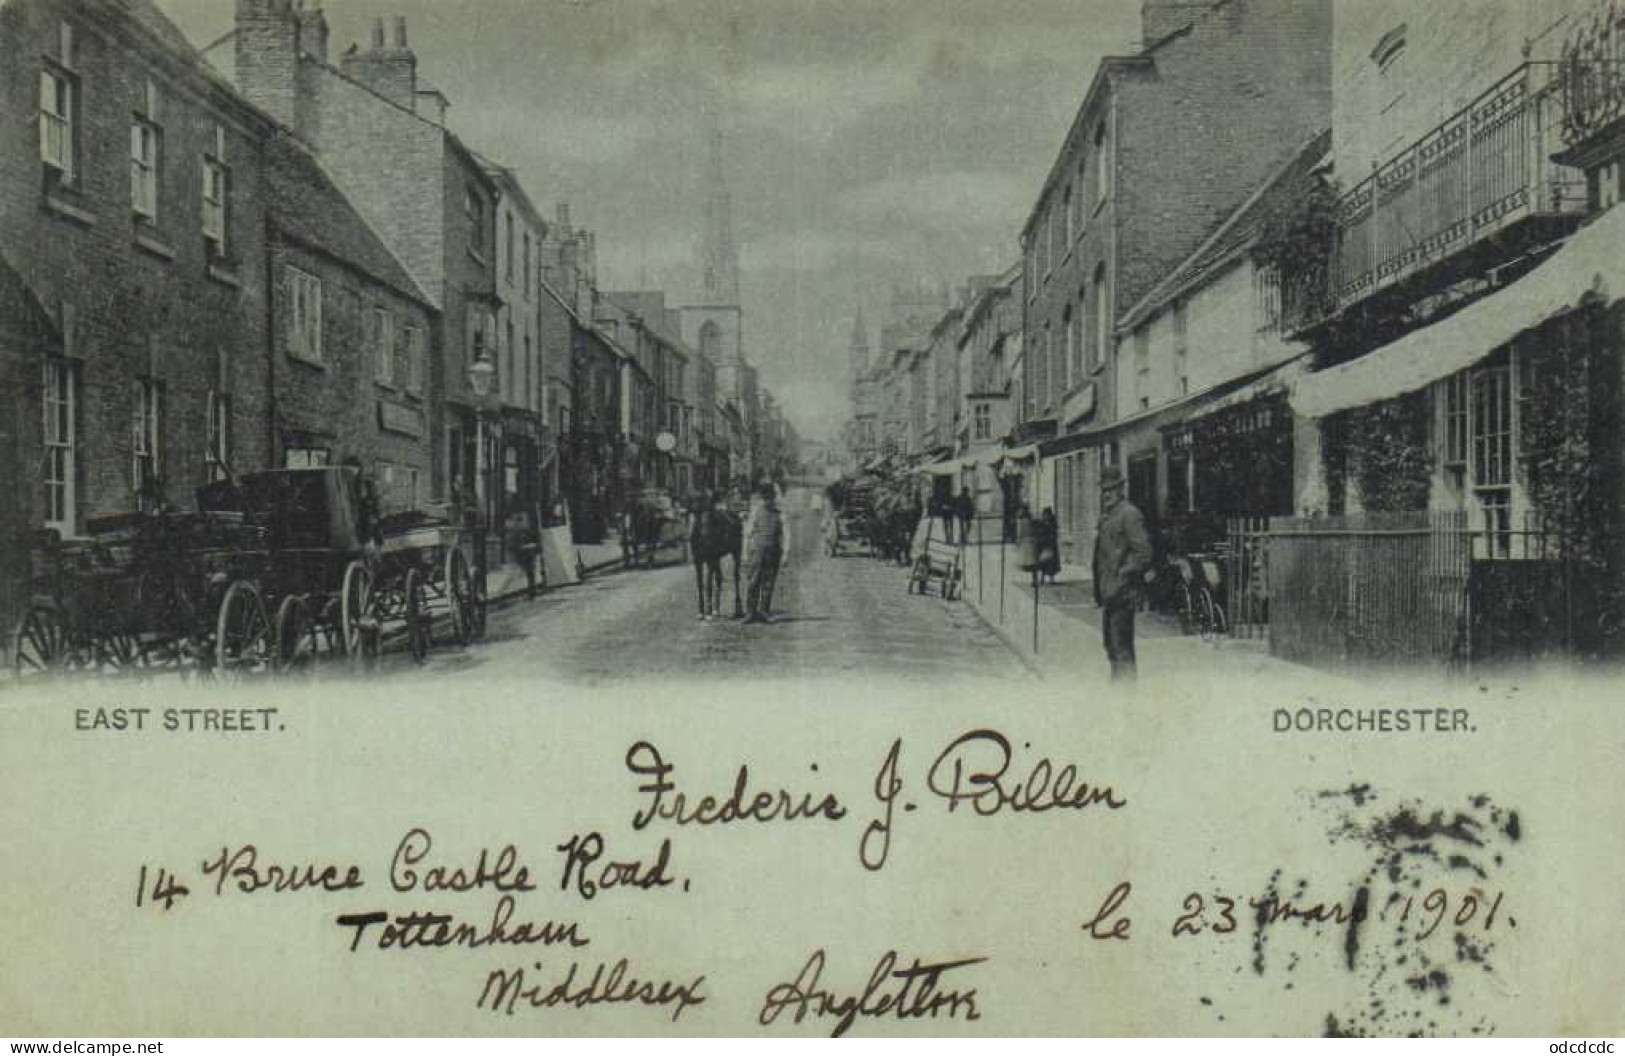 EAST STREET.
DORCHESTER.
Frederic J. Billen
14 Bruce Castle Road,
Tottenham
le 23 mars 1901.
Middlesex Angleterre
www.delcampe.net
odcdcdc